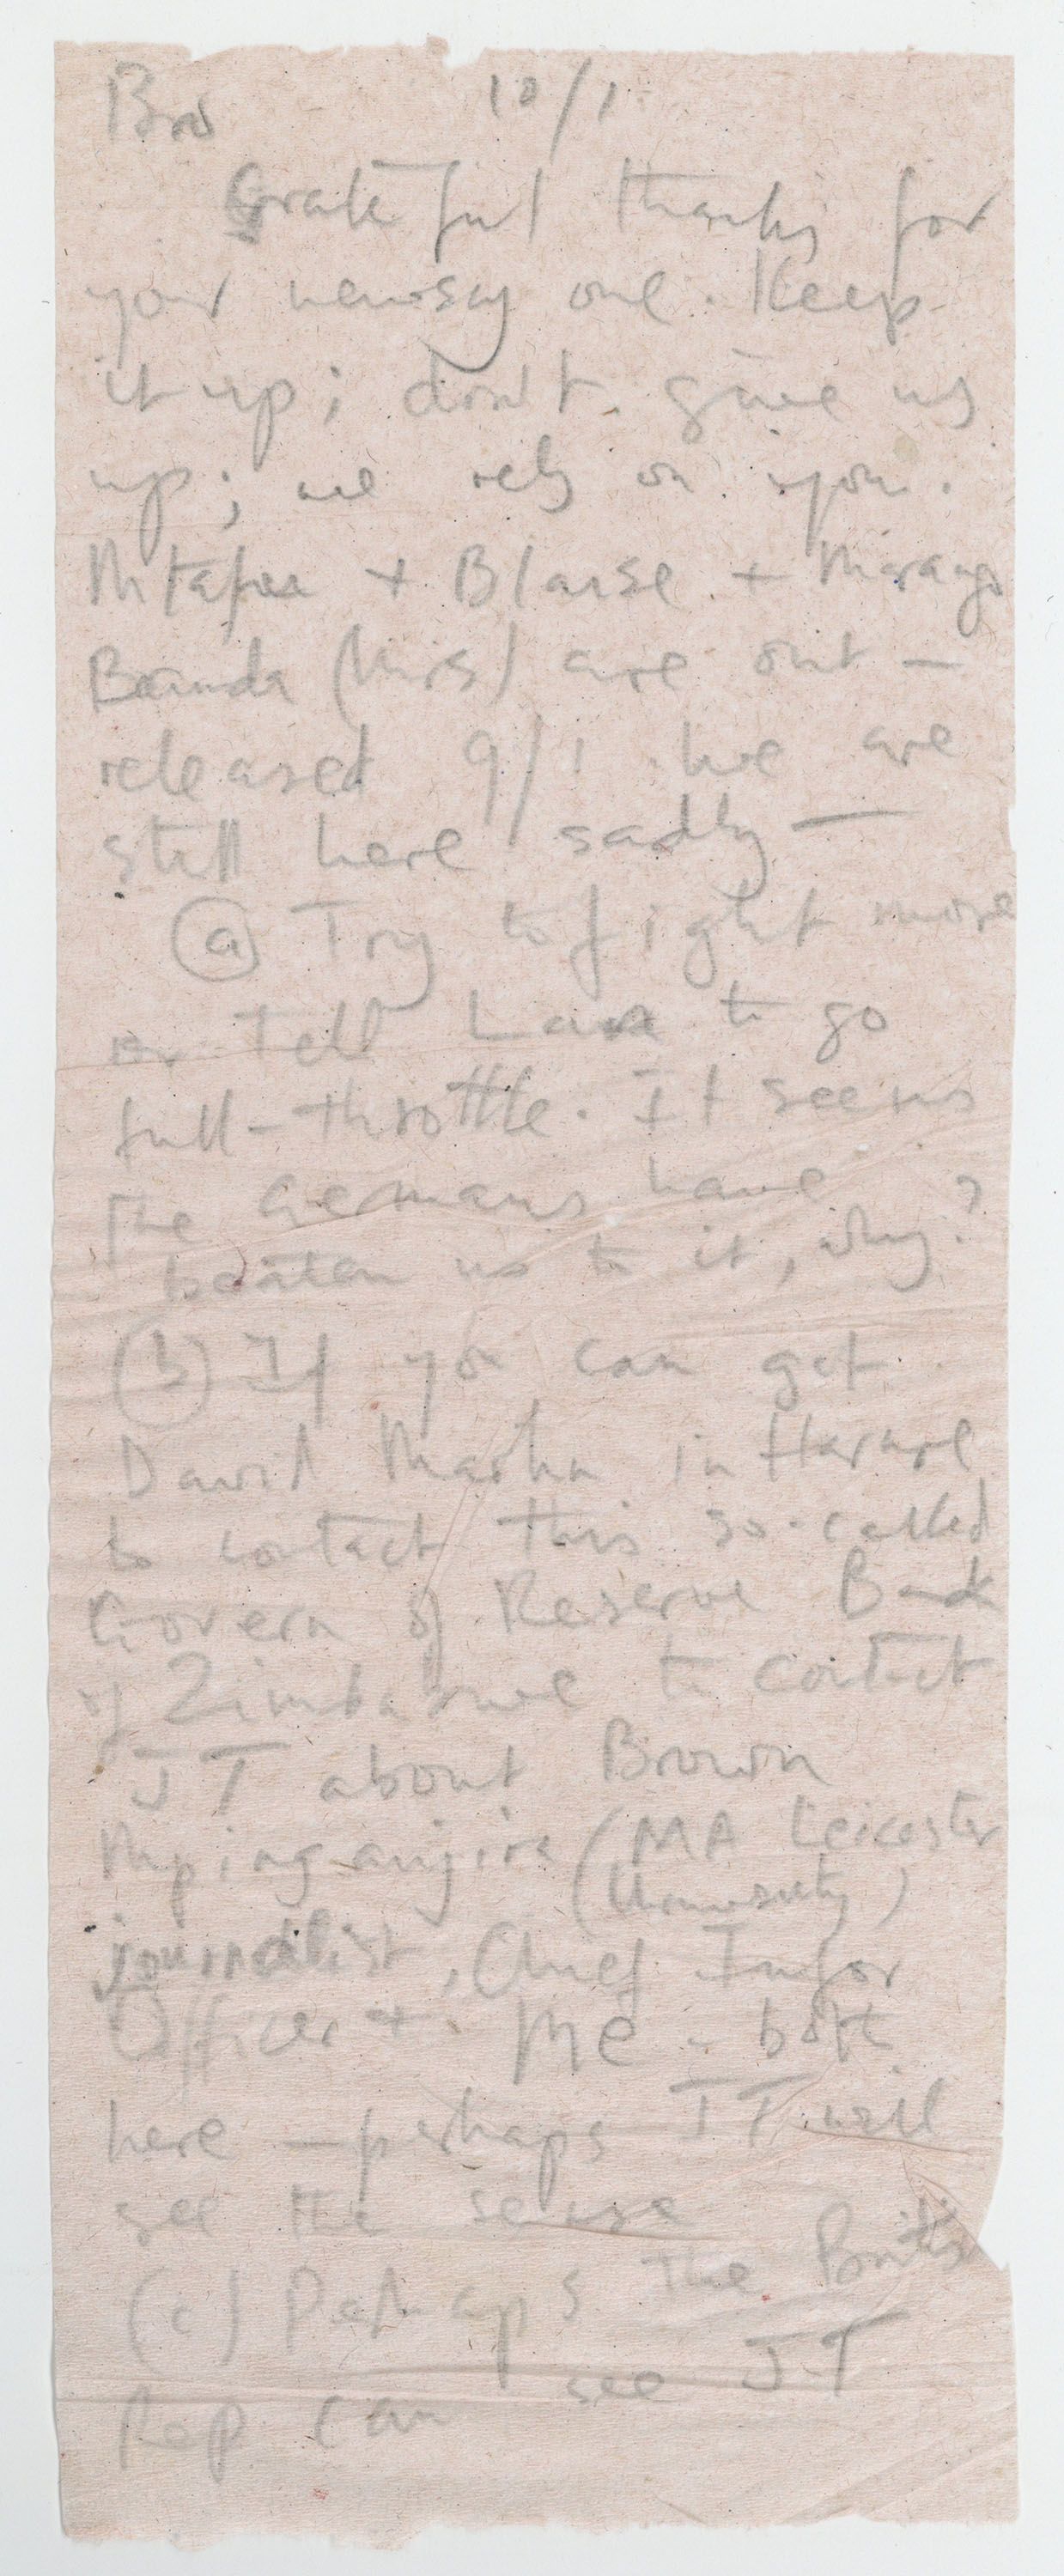 Bro 10/1
Grateful thanks for
your newsy one. Keep
it up; don't give us
up; we rely on you.
Mtafu + Blaise + Marango
Banda (Mrs) are out —
released 9/1. We are
still here sadly —
(a) Try to fight more
or Tell Lan to go
full-throttle. It seems
the Germans have
beaten us to it, why?
(b) If you can get
David Martin in Harare
to contact this so-called
Govern of Reserve Bank
of Zimbabwe to contact
JT about Brown
Mpinganjira (MA Leicester
University)
journalist, Chief Infor
Officer + Me - both
here — perhaps JT will
see the sense
(c) Perhaps the British
Rep can see JT